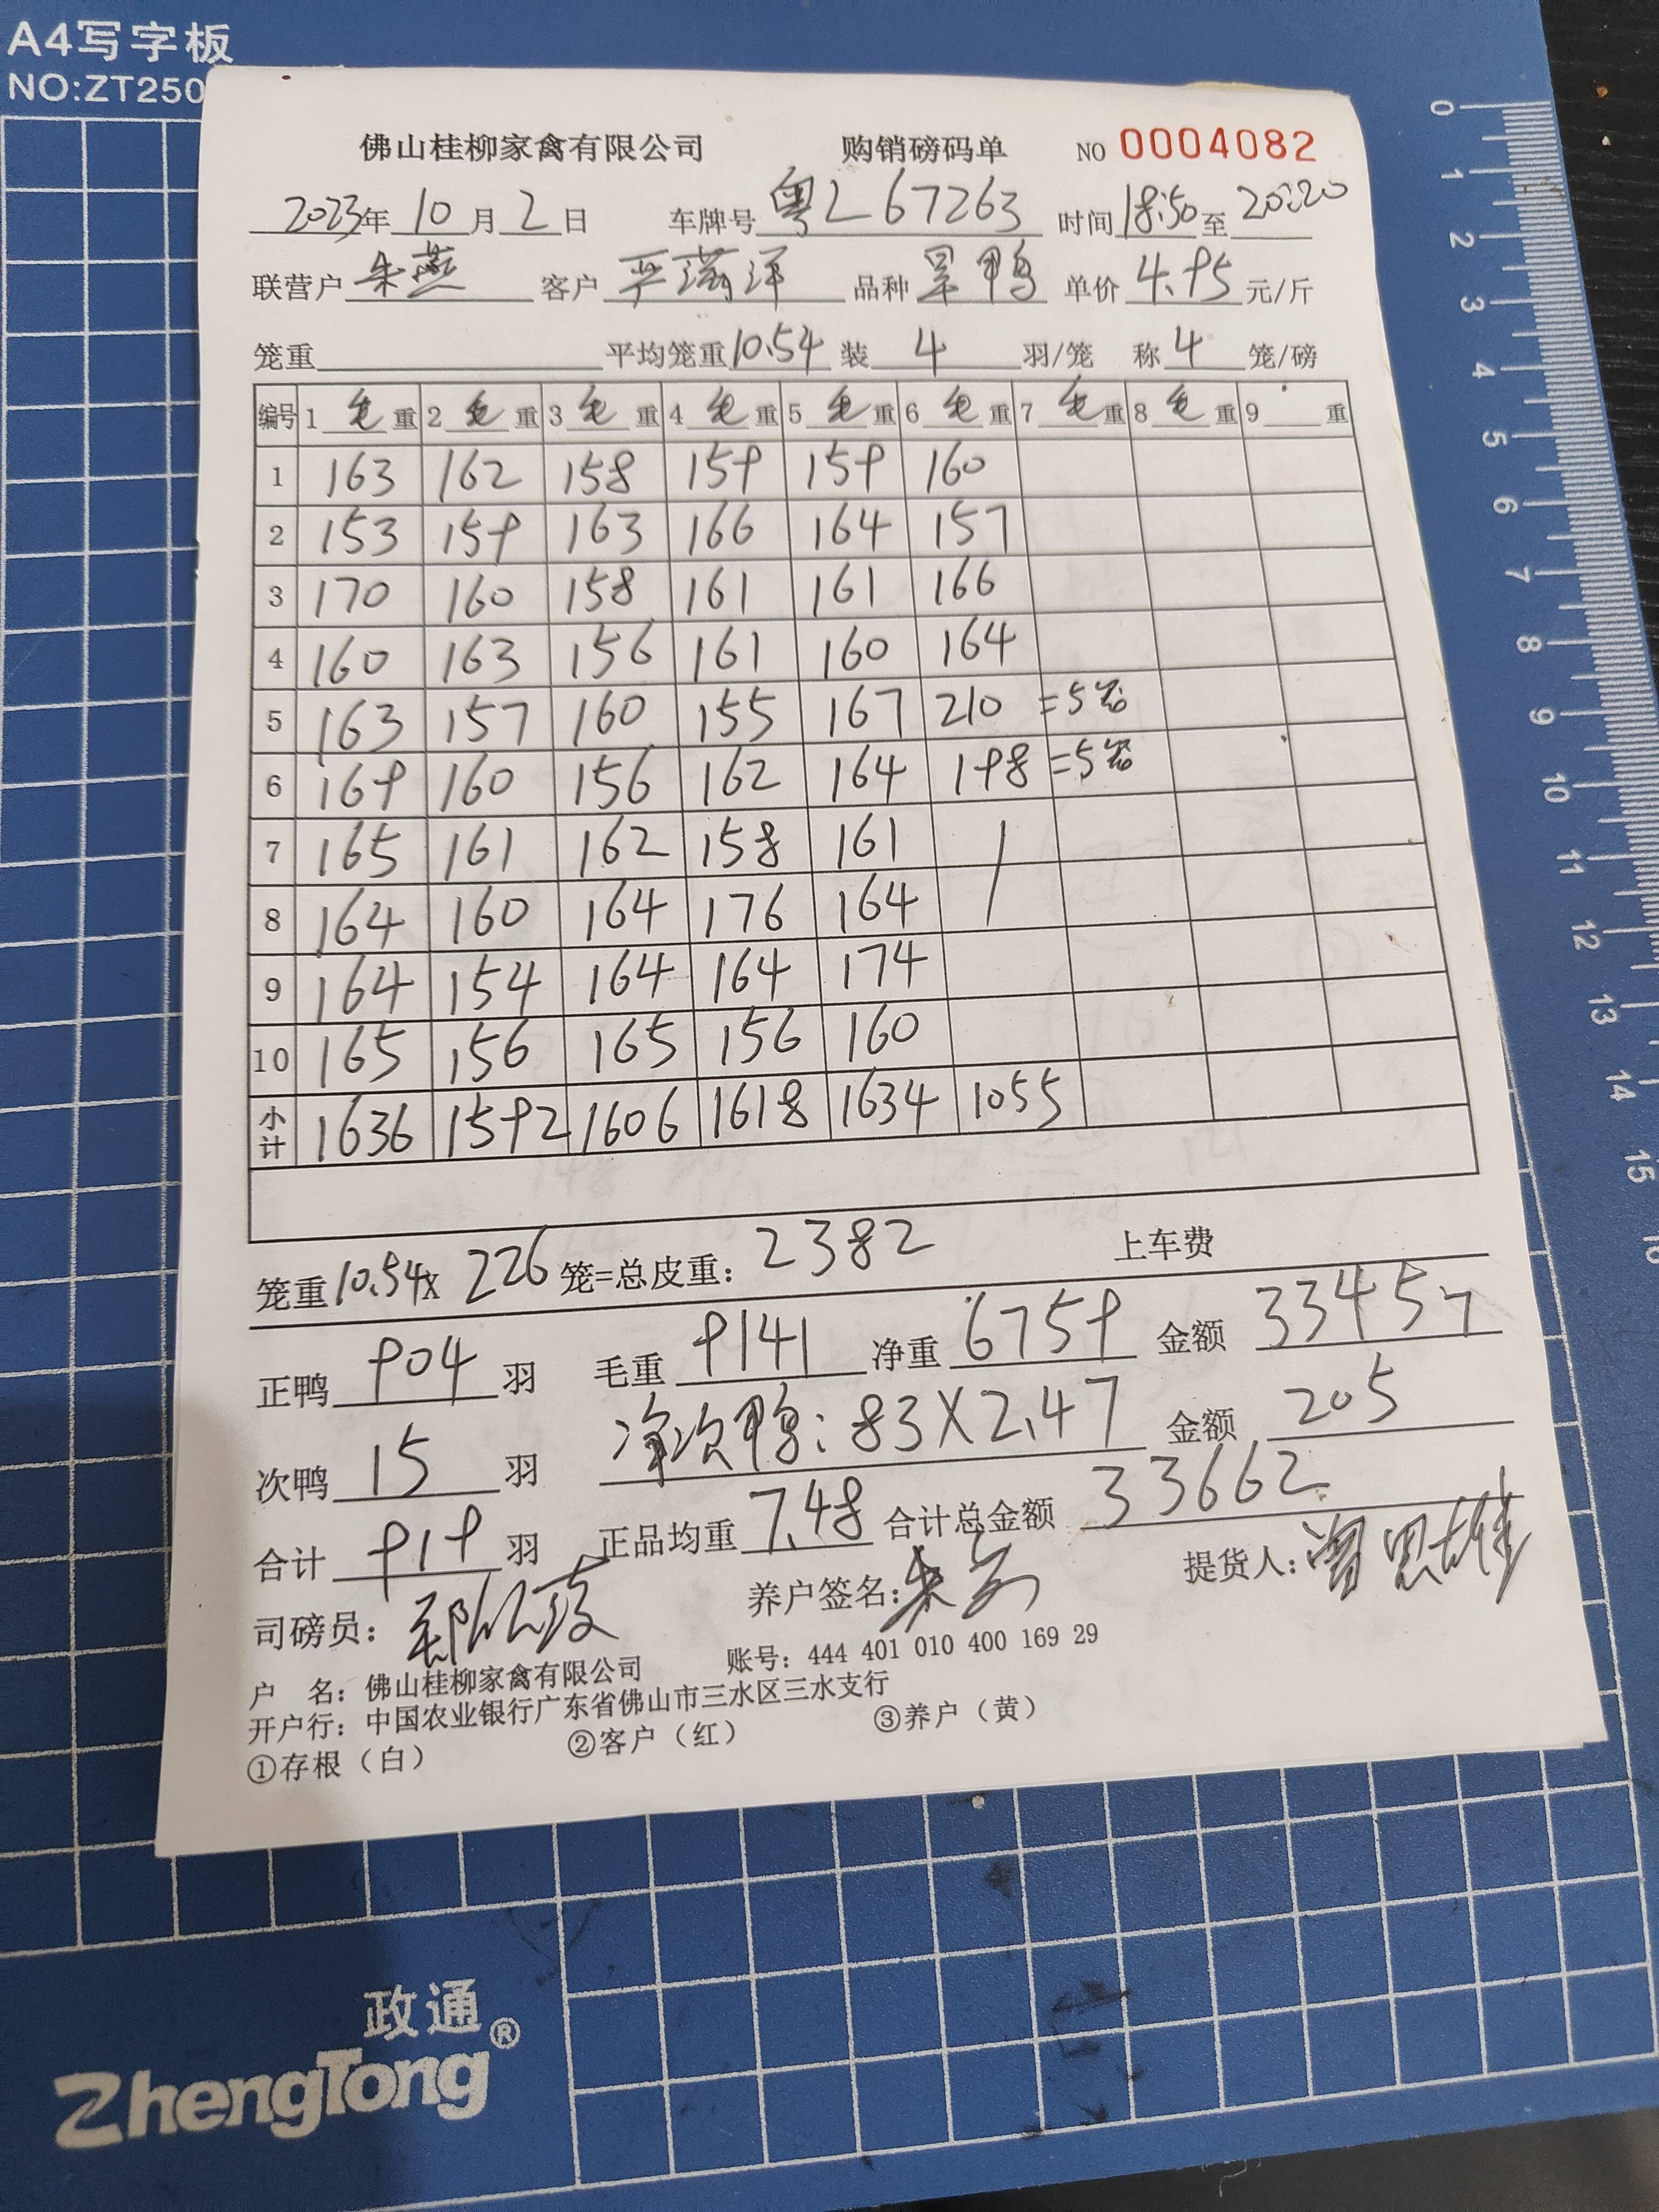 A4写字板
NO:ZT250
佛山桂柳家禽有限公司 购销磅码单 NO 0004082
2023年 10 月 2 日 车牌号 粤L67263 时间 18:50 至 20:20
联营户 朱燕 客户 严满洋 品种 黑鸭 单价 4.95 元/斤
笼重 平均笼重 10.54 装 4 羽/笼 称 4 笼/磅
编号 1 毛 重 2 毛 重 3 毛 重 4 毛 重 5 毛 重 6 毛 重 7 毛 重 8 毛 重 9 重
1 163 162 158 159 159 160
2 153 159 163 166 164 157
3 170 160 158 161 161 166
4 160 163 156 161 160 164
5 163 157 160 155 167 210 =5笼
6 169 160 156 162 164 198 =5笼
7 165 161 162 158 161
8 164 160 164 176 164
9 164 154 164 164 174
10 165 156 165 156 160
小计 1636 1592 1606 1618 1634 1055
笼重 10.54 x 226 笼=总皮重: 2382 上车费
正鸭 904 羽 毛重 9141 净重 6759 金额 33457
次鸭 15 羽 净次鸭: 83X2.47 金额 205
合计 919 羽 正品均重 7.48 合计总金额 33662
司磅员: 养户签名: 提货人:
户 名: 佛山桂柳家禽有限公司 账号: 444 401 010 400 169 29
开户行: 中国农业银行广东省佛山市三水区三水支行
①存根（白） ②客户（红） ③养户（黄）
0
1
2
3
4
5
6
7
8
9
10
11
12
13
14
15
政通®
ZhengTong